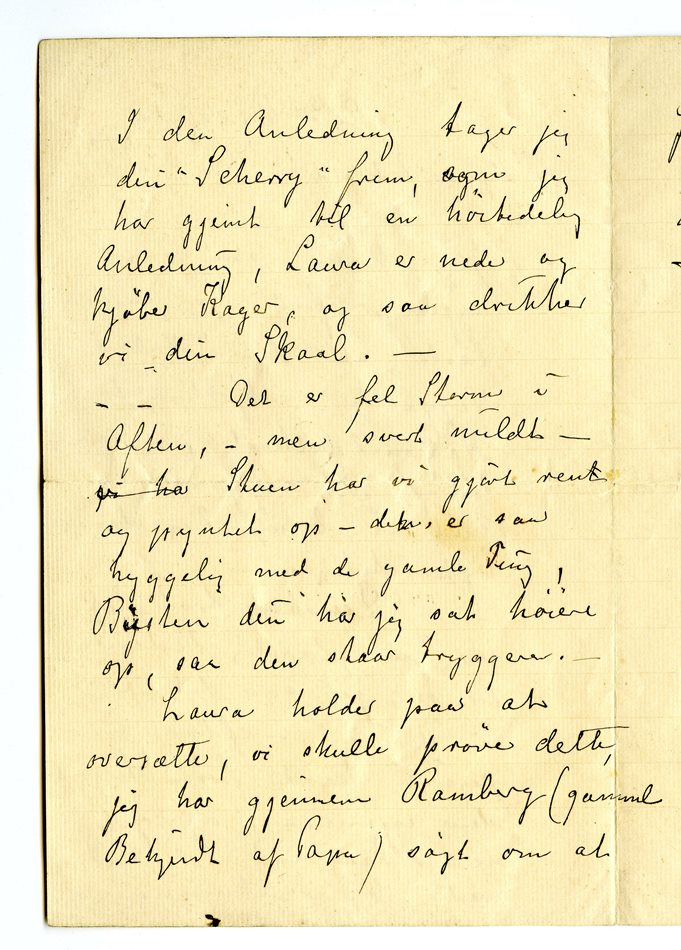 I den Anledning tager jeg
din "Scherry" frem, som jeg
har gjemt til en höitidelig
Anledning, Laura er nede og
kjøber Kager, og saa drikker
vi din Skaal. —
— — Det er fel Storm i
Aften, – men svert mildt —
vi ha Stuen har vi gjört rent
og pyntet op – den er saa
hyggelig med de gamle Ting,
Bysten din har jeg sat höiere
op, saa den staar tryggere. —
Laura holder paa at
oversætte, vi skulle pröve dette,
jeg har gjennem Ramberg (gammel
Bekjendt af Papa) sögt om at